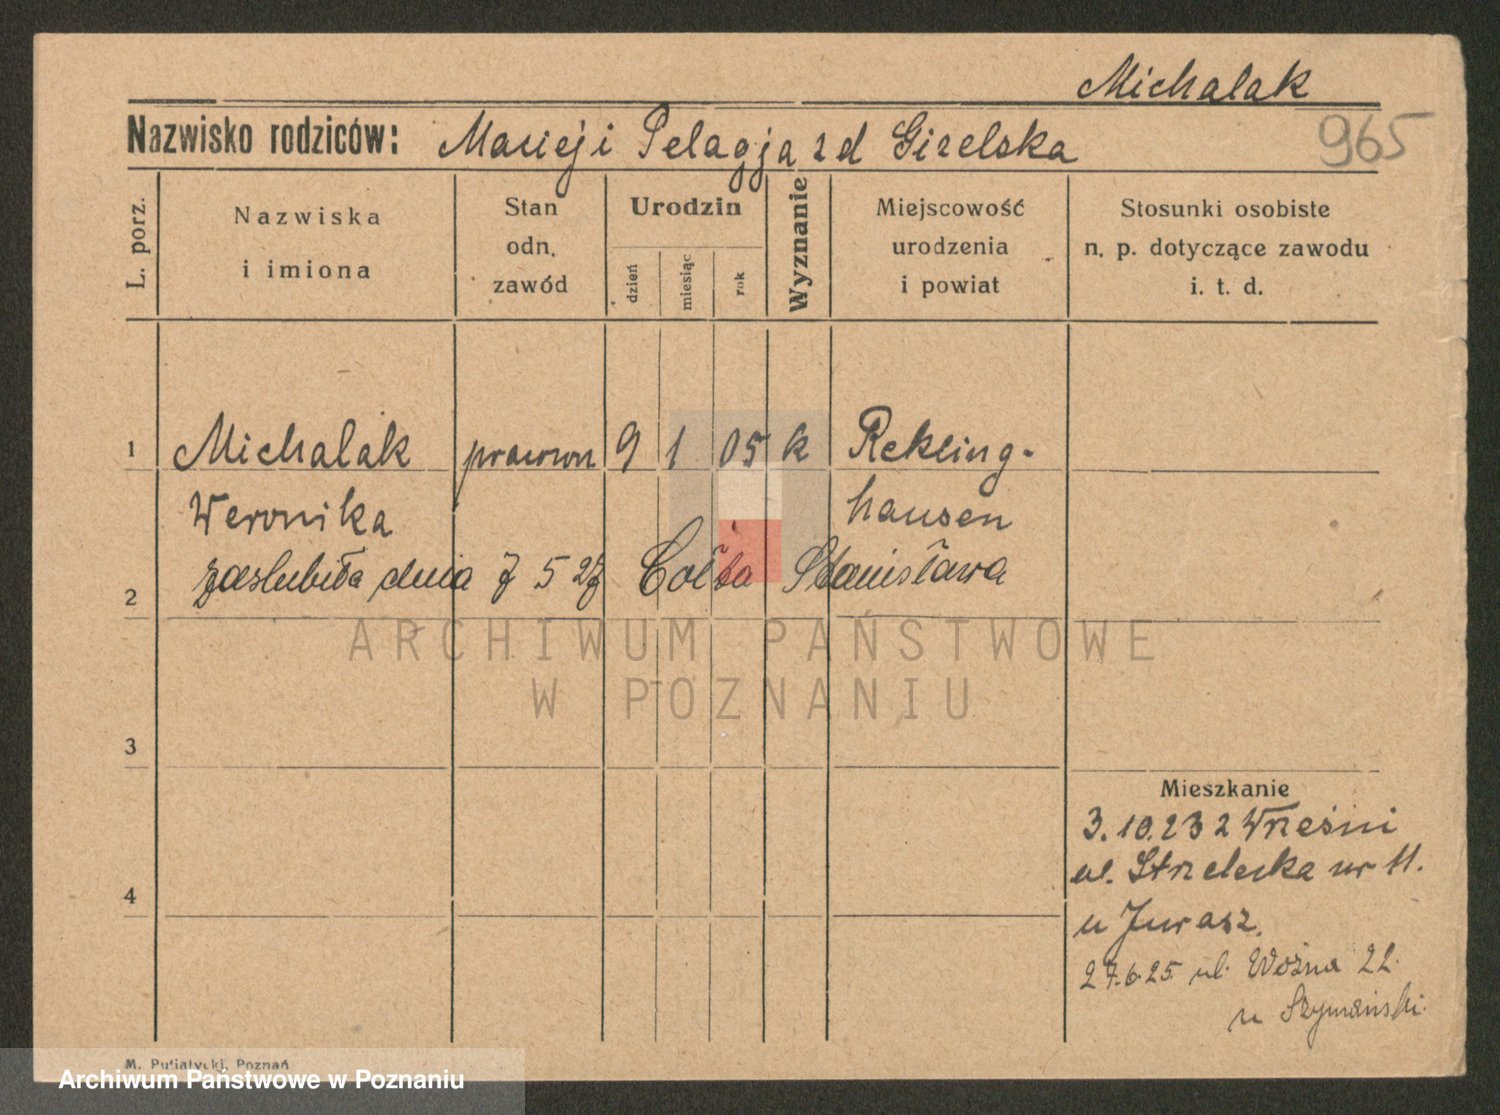 Michalak
Nazwisko rodziców: Maciej i Pelagja z d Gizelska
965
L. porz.
Nazwiska
i imiona
Stan
odn.
zawód
Urodzin
dzień
miesiąc
rok
Wyznanie
Miejscowość
urodzenia
i powiat
Stosunki osobiste
n. p. dotyczące zawodu
i. t. d.
1 Michalak pracown 9 1 05 k Rekling-
Weronika hausen
2 zaślubiła dnia 7 5 27 Stanisława
ARCHIWUM PAŃSTWOWE
W POZNANIU
3
Mieszkanie
3.10.23 z Wrześni
ul. Strzelecka nr 11.
4
u Jurasz.
27.6.25 ul. Woźna 22.
u Szymański.
M. Putiatycki, Poznań
Archiwum Państwowe w Poznaniu